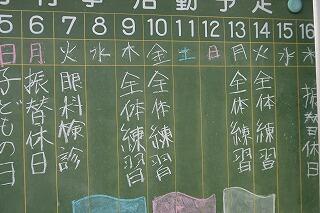 行事・活動予定
5 6 7 8 9 10 11 12 13 14 15 16
日 月 火 水 木 金 土 日 月 火 水 木
子どもの日
振替休日
眼科検診
全体練習
全体練習
全体練習
全体練習
振替休日